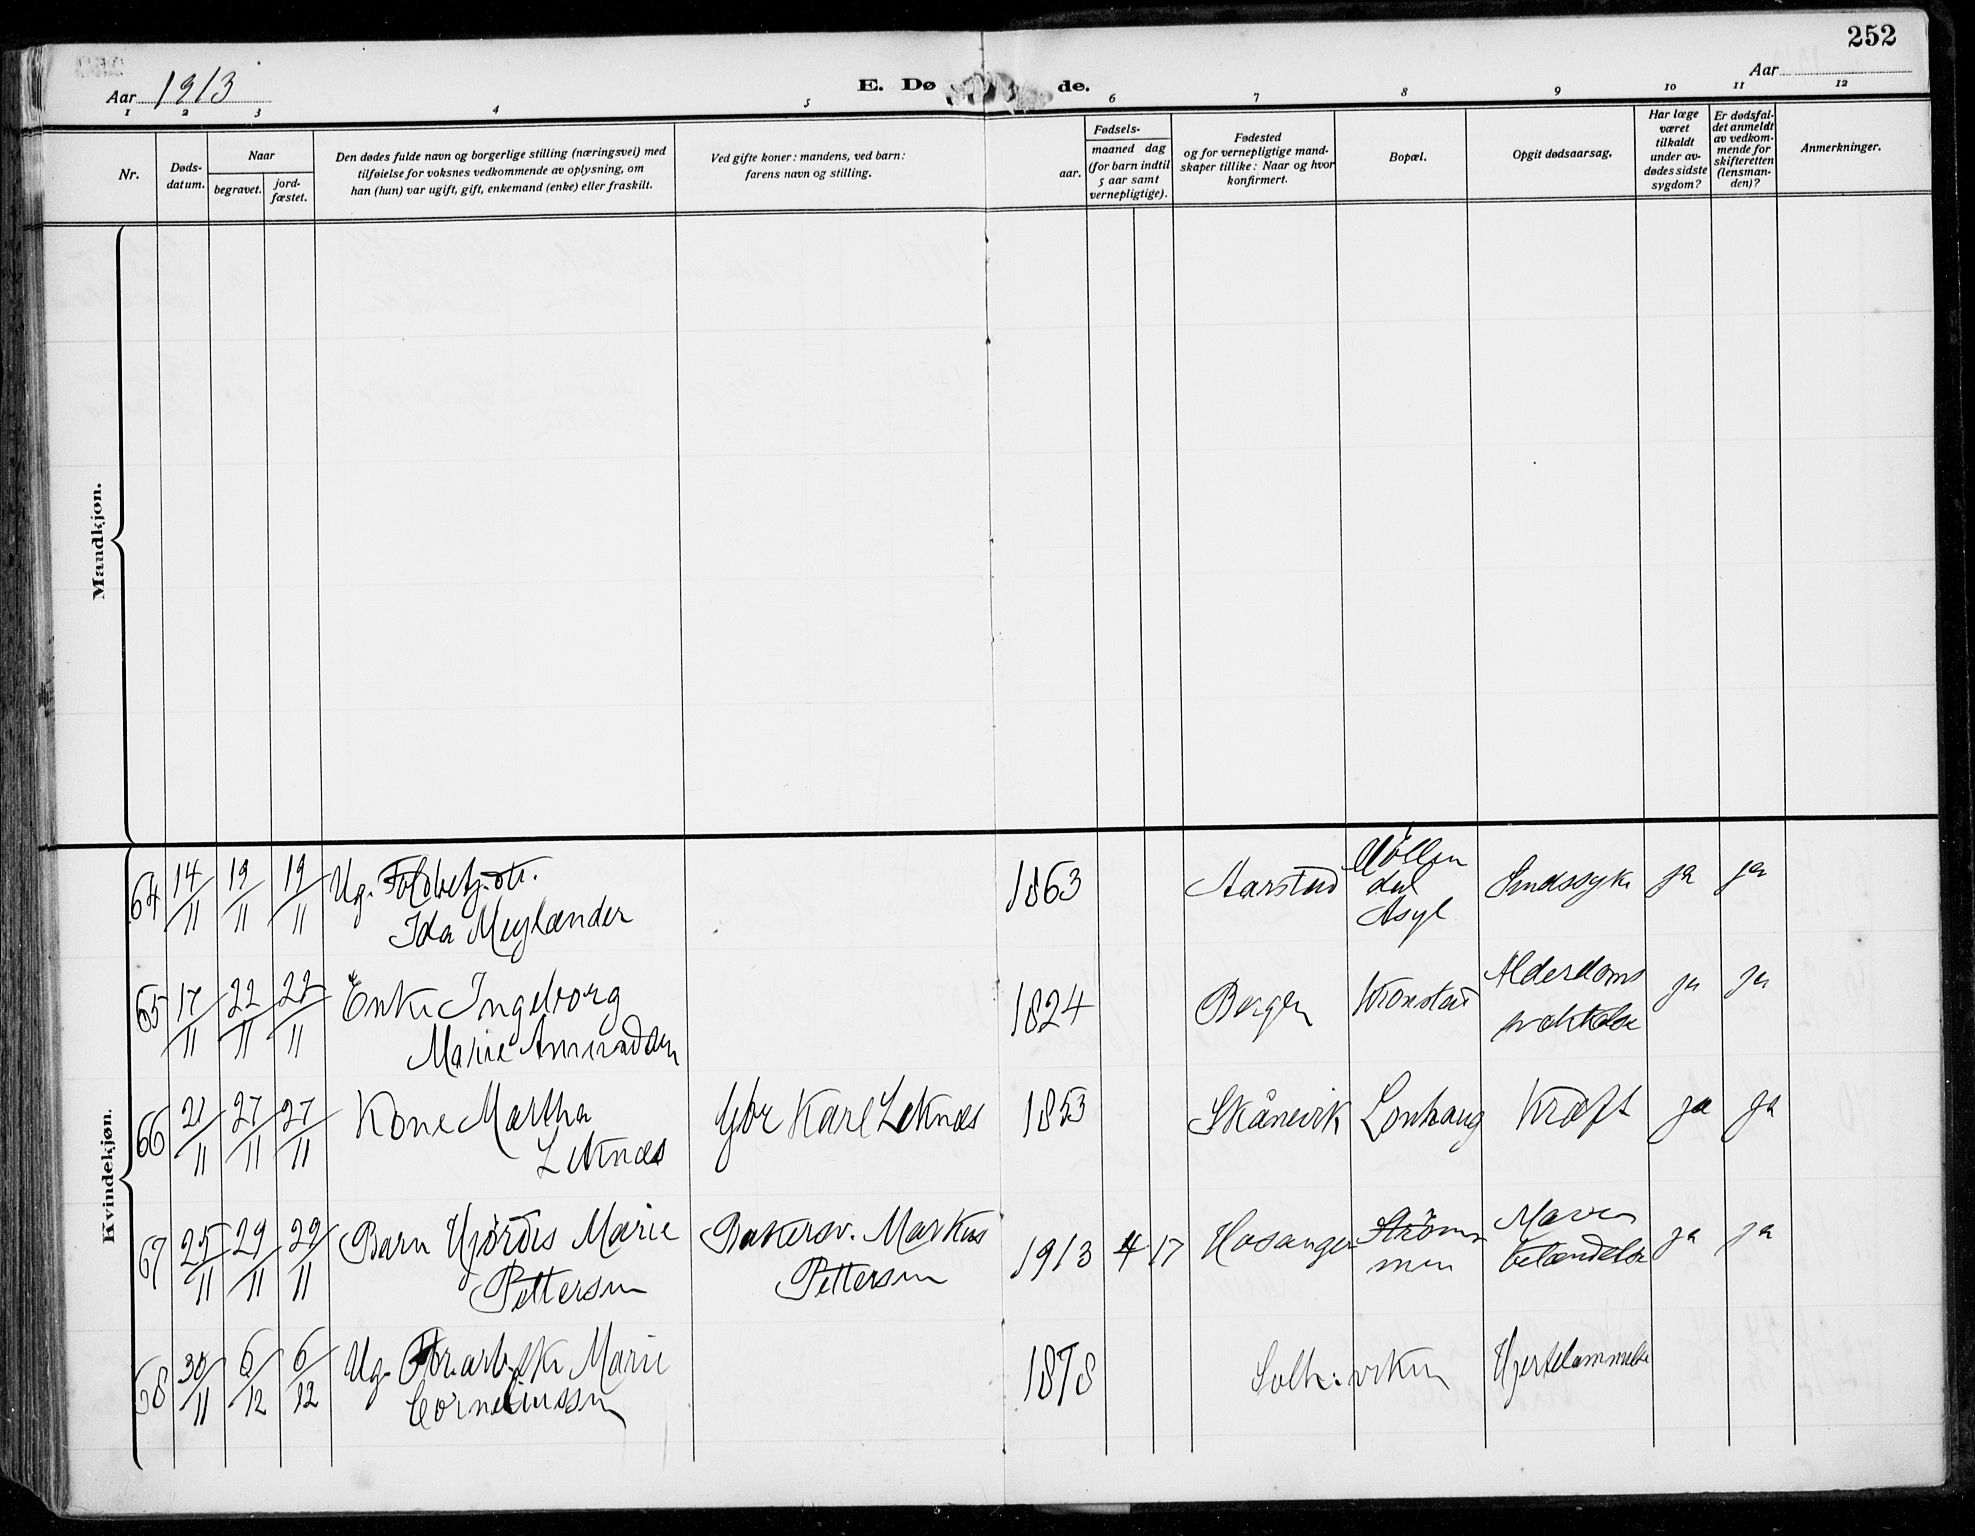 252
Aar 1913
E. Dø de.
Aar
1 2 3 4 5 6 7 8 9 10 11 12
Nr.
Døds-
datum.
Naar
begravet.
jord-
fæstet.
Den dødes fulde navn og borgerlige stilling (næringsvei) med
tilføielse for voksnes vedkommende av oplysning, om
han (hun) var ugift, gift, enkemand (enke) eller fraskilt.
Ved gifte koner: mandens, ved barn:
farens navn og stilling.
Fødsels-
aar.
maaned dag
(for barn indtil
5 aar samt
vernepligtige).
Fødested
og for vernepligtige mand-
skaper tillike: Naar og hvor
konfirmert.
Bopæl.
Opgit dødsaarsag.
Har læge
været
tilkaldt
under av-
dødes sidste
sygdom?
Er dødsfal-
det anmeldt
av vedkom-
mende for
skifteretten
(lensman-
den)?
Anmerkninger.
Mandkjøn.
Kvindekjøn.
64 14/11 19/11 19/11 Ug.
Ida Meylænder
1863 Aarstad Møllen
dal
Asyl
Sindssyke ja ja
65 17/11 22/11 22/11 Enke Ingeborg
Marie
1824 Bergen Kronstad Alderdoms
ja ja
66 21/11 27/11 27/11 Kone Martha
Leknæs
Karl Leknæs 1853 Skånevik Lonhaug Kræft ja ja
67 25/11 29/11 29/11 Barn Hjørdis Marie
Pettersen
Bakersv. Markus
Pettersen
1913 4 17 Hosanger Strøm
men
Mave
betændelse
ja ja
68 30/11 6/12 6/12 Ug. Marie
Corneliussen
1878 Solh: viken Hjertelammelse